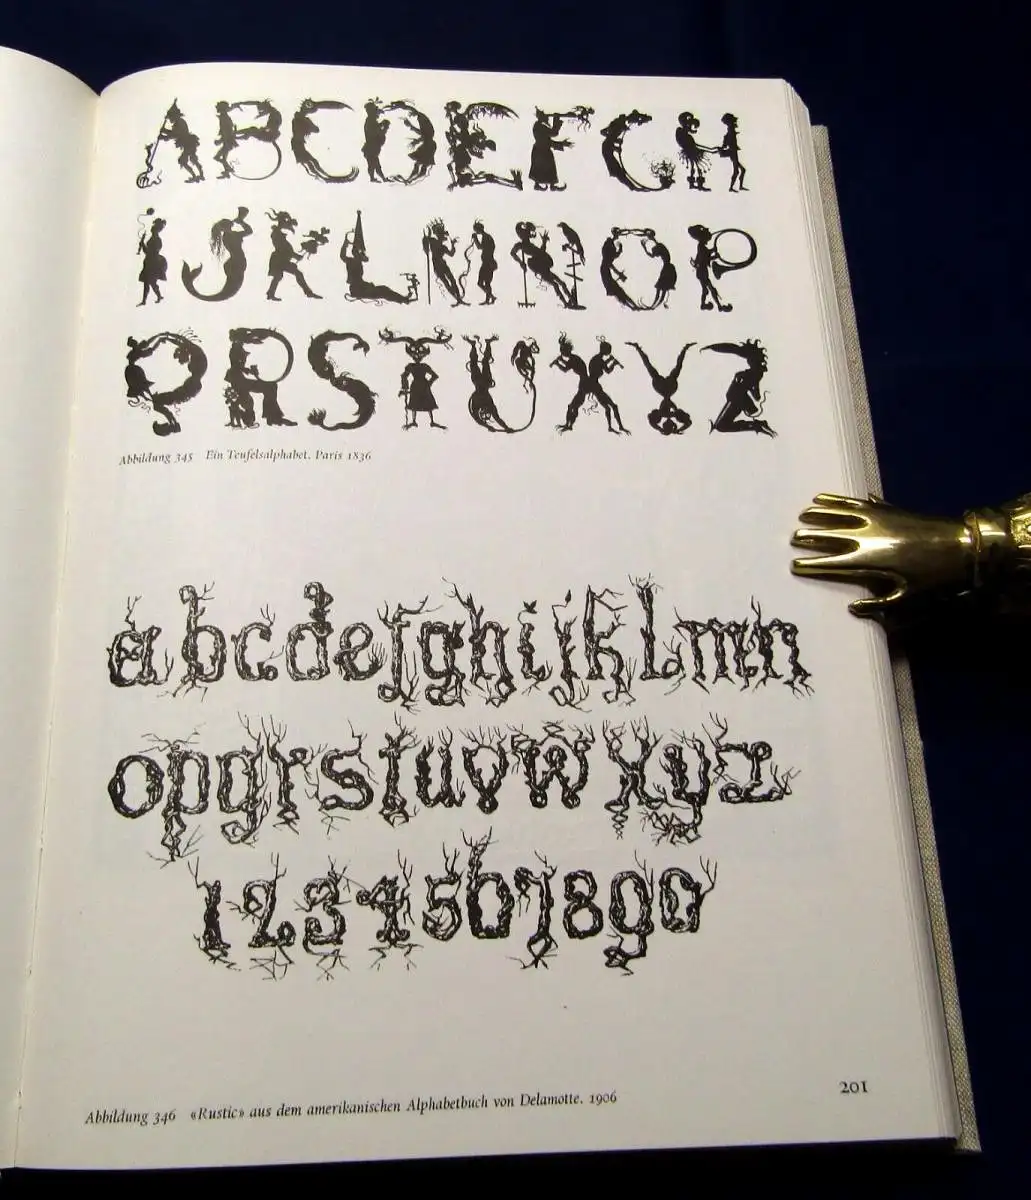 ABCDEFGH
IJKLMNOP
QRSTUXYZ
Abbildung 345 Ein Teufelsalphabet. Paris 1836
abcdefghijklmn
opqrstuvwxyz
1234567890
Abbildung 346 «Rustic» aus dem amerikanischen Alphabetbuch von Delamotte. 1906
201